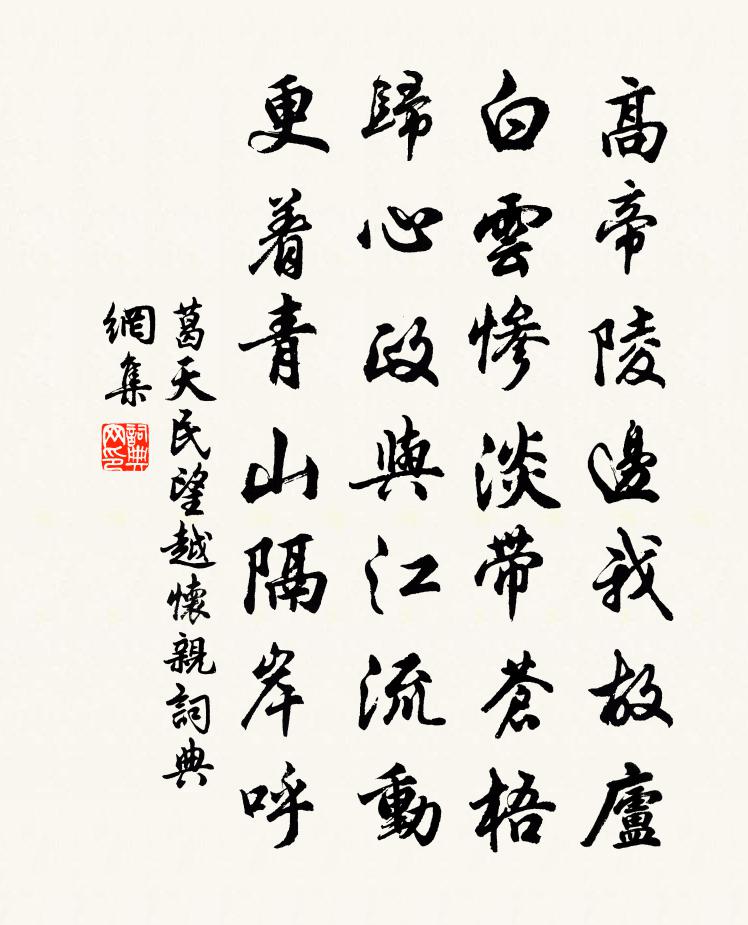 高帝陵邊我故廬
白雲慘淡帶蒼梧
歸心政與江流動
更着青山隔岸呼
葛天民望越懷親詞典
網集
詞典
网印